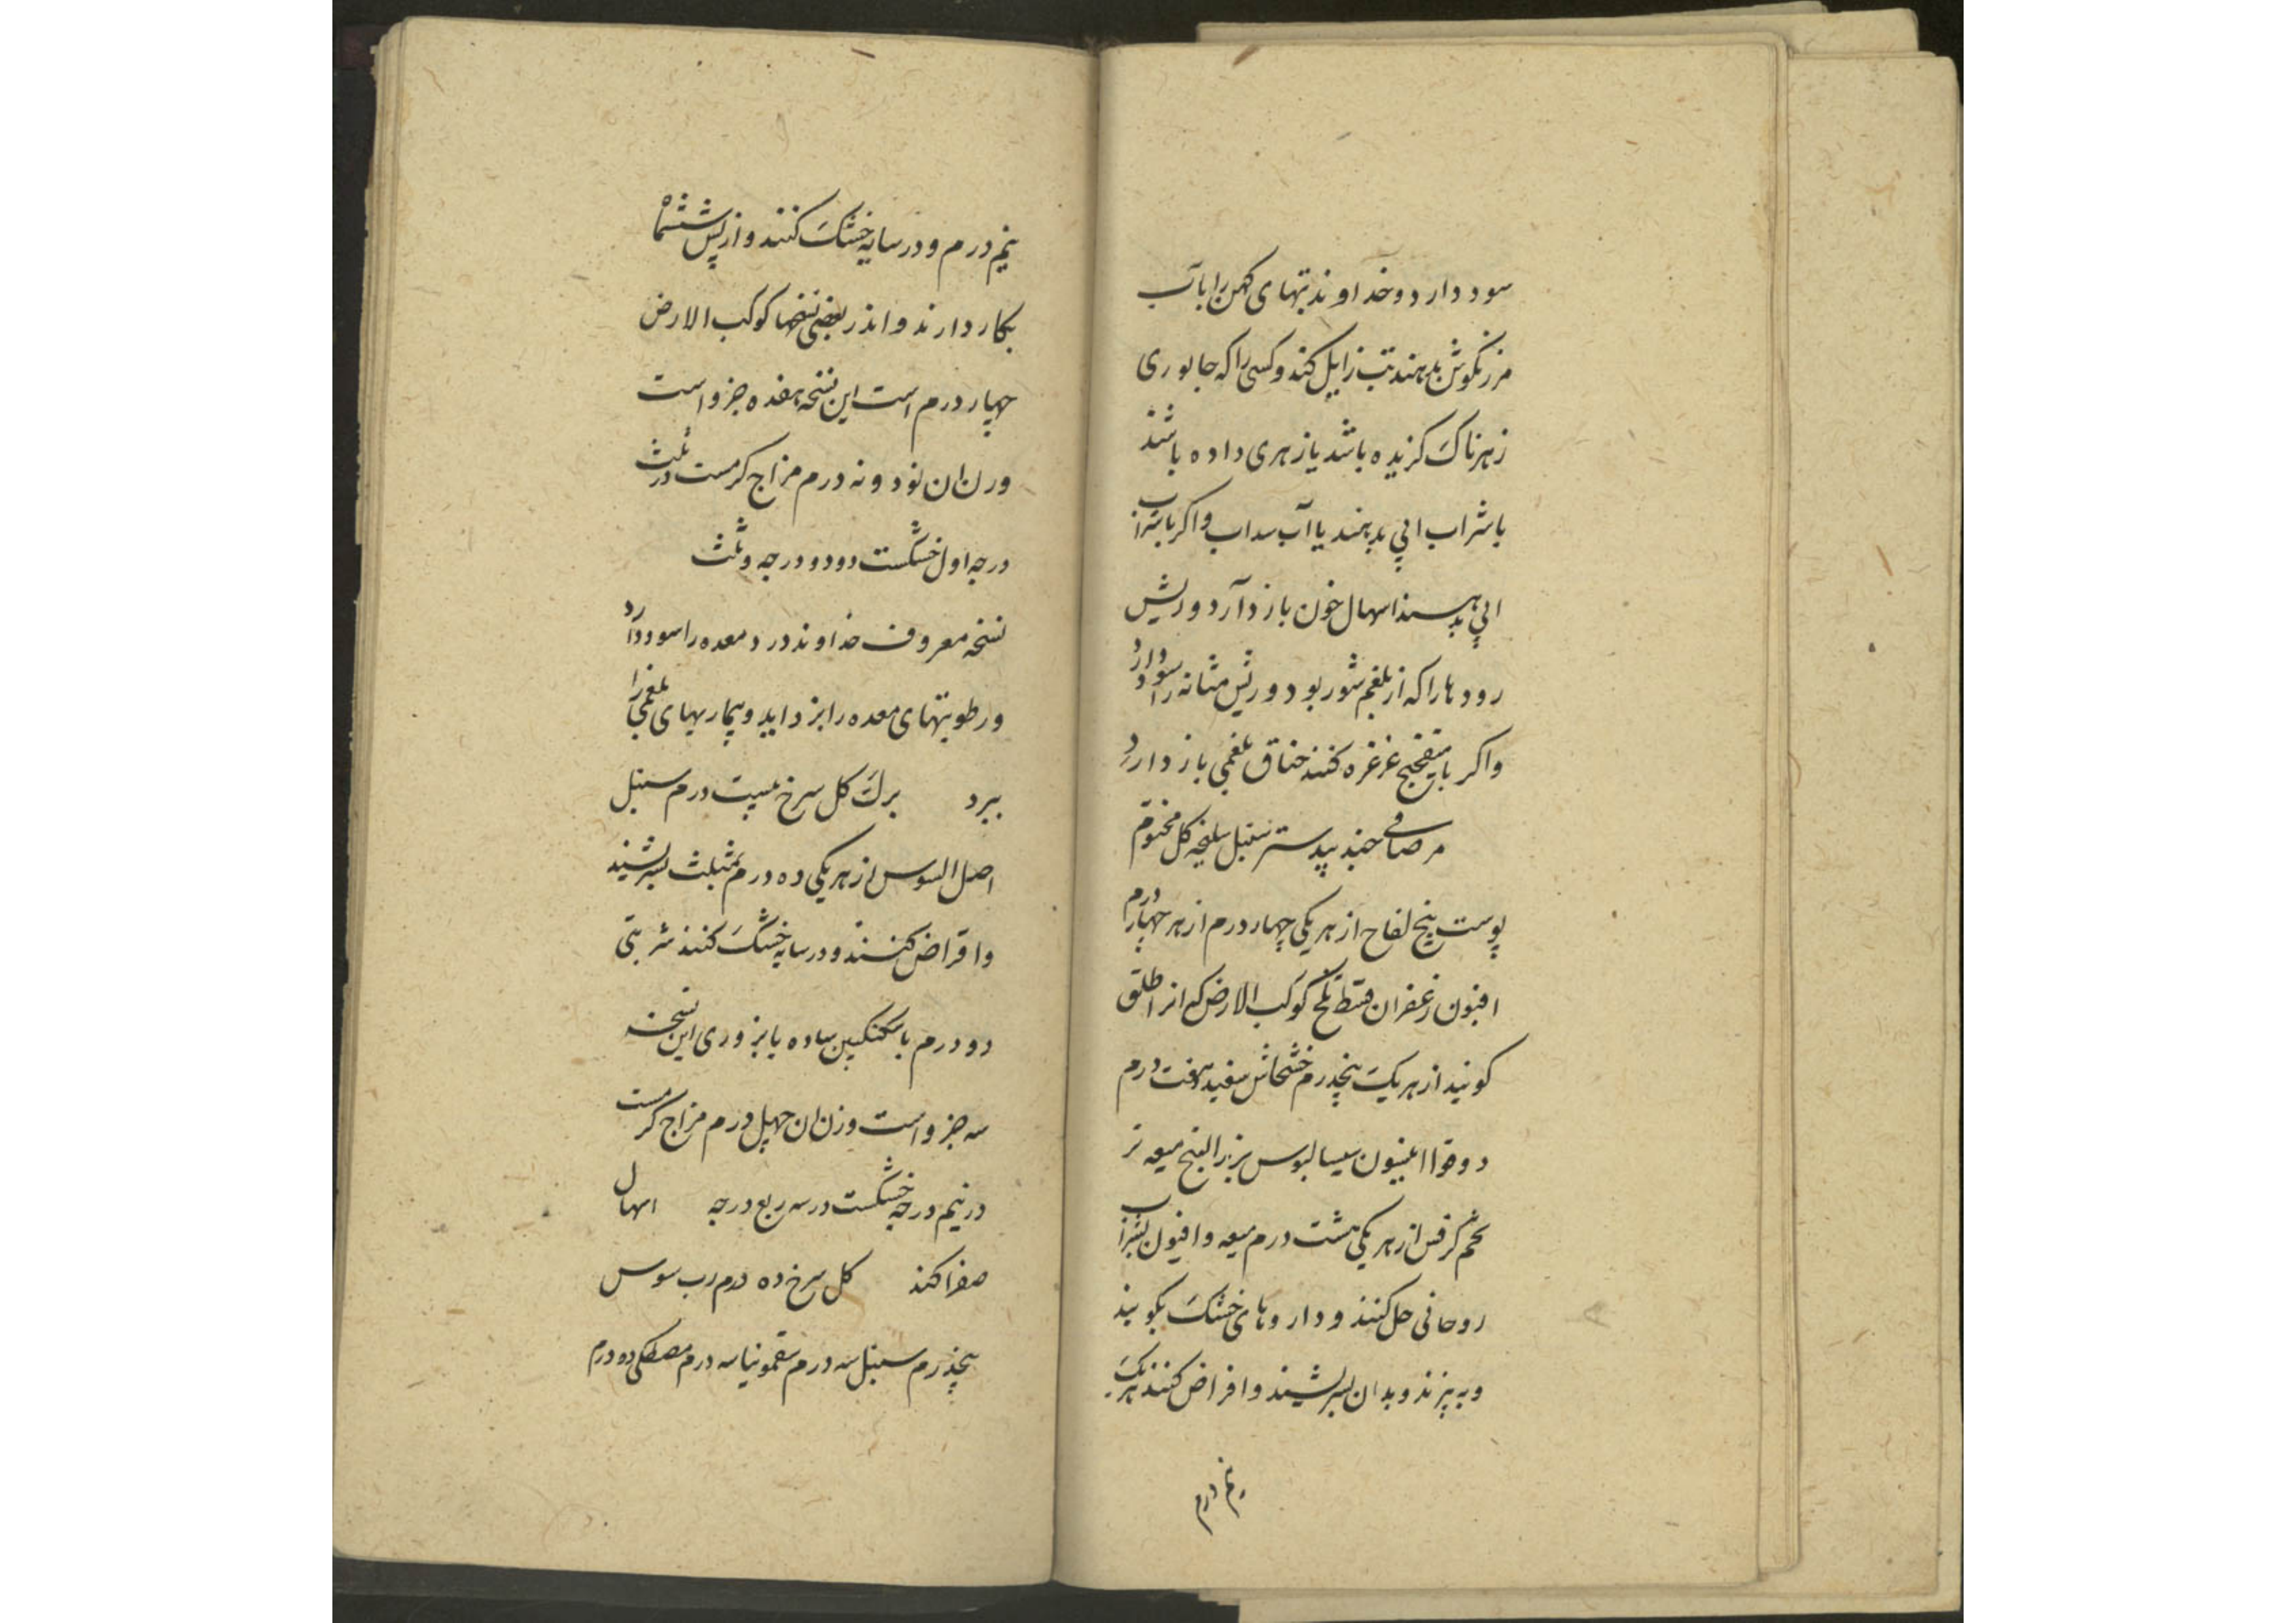 سود دارد و خداوند تبهای کهن را باب
مرزنکوش بدهند تب زایل کند و کسی را که جانوری
زهرناک کزیده باشد یا زهری داده باشند
با شراب ابی بدهند یا آب سداب و اکر با شراب
ابی بدهند اسهال خون باز دآرد و ریش
رودهارا که از بلغم شور بود و ریش مثانه را سود دارد
واکر بامیفختج غرغره کنند خناق بلغمی باز دارد
مر صافی جندبیدستر سنبل سلیخه کل مختوم
پوست بیخ لفاح از هر یکی چهار درم از هر چهار درم
افیون زعفران قسط تلخ کوکب الارض که انرا طلق
کویند از هر یک پنجدرم خشخاش سفید هفت درم
دوقوا انیسون سیسالیوس بزرالبنج میعه تر
تخم کرفس از هر یکی هشت درم میعه و افیون بشراب
روحانی حل کنند و داروهای خشک بکوبند
و به پزند و بدان بسرشند و اقراض کنند هر یک
نیم درم
نیم درم و در سایه خشک کنند و از پس ششماه
بکار دارند و اندر بعضی نسخها کوکب الارض
چهار درم است این نسخه هفده جزو است
وزن ان نود و نه درم مزاج کرمست در ثلث
درجه اول خشکست دو دو درجه و ثلث
نسخه معروف خداوند درد معده را سود دارد
و رطوبتهای معده را بزداید و بیماریهای بلغمی را
ببرد برک کل سرخ بیست درم سنبل
اصل السوس از هر یکی ده درم بمثلث بسرشند
واقراض کنند و در سایه خشک کنند شربتی
دو درم با سکنکبین ساده یا بزوری این نسخه
سه جزو است وزن ان چهل درم مزاج کرمست
در نیم درجه خشکست در سه ربع درجه اسهال
صفرا کند کل سرخ ده درم رب سوس
پنجدرم سنبل سه درم سقمونیا سه درم مصطکی ده درم